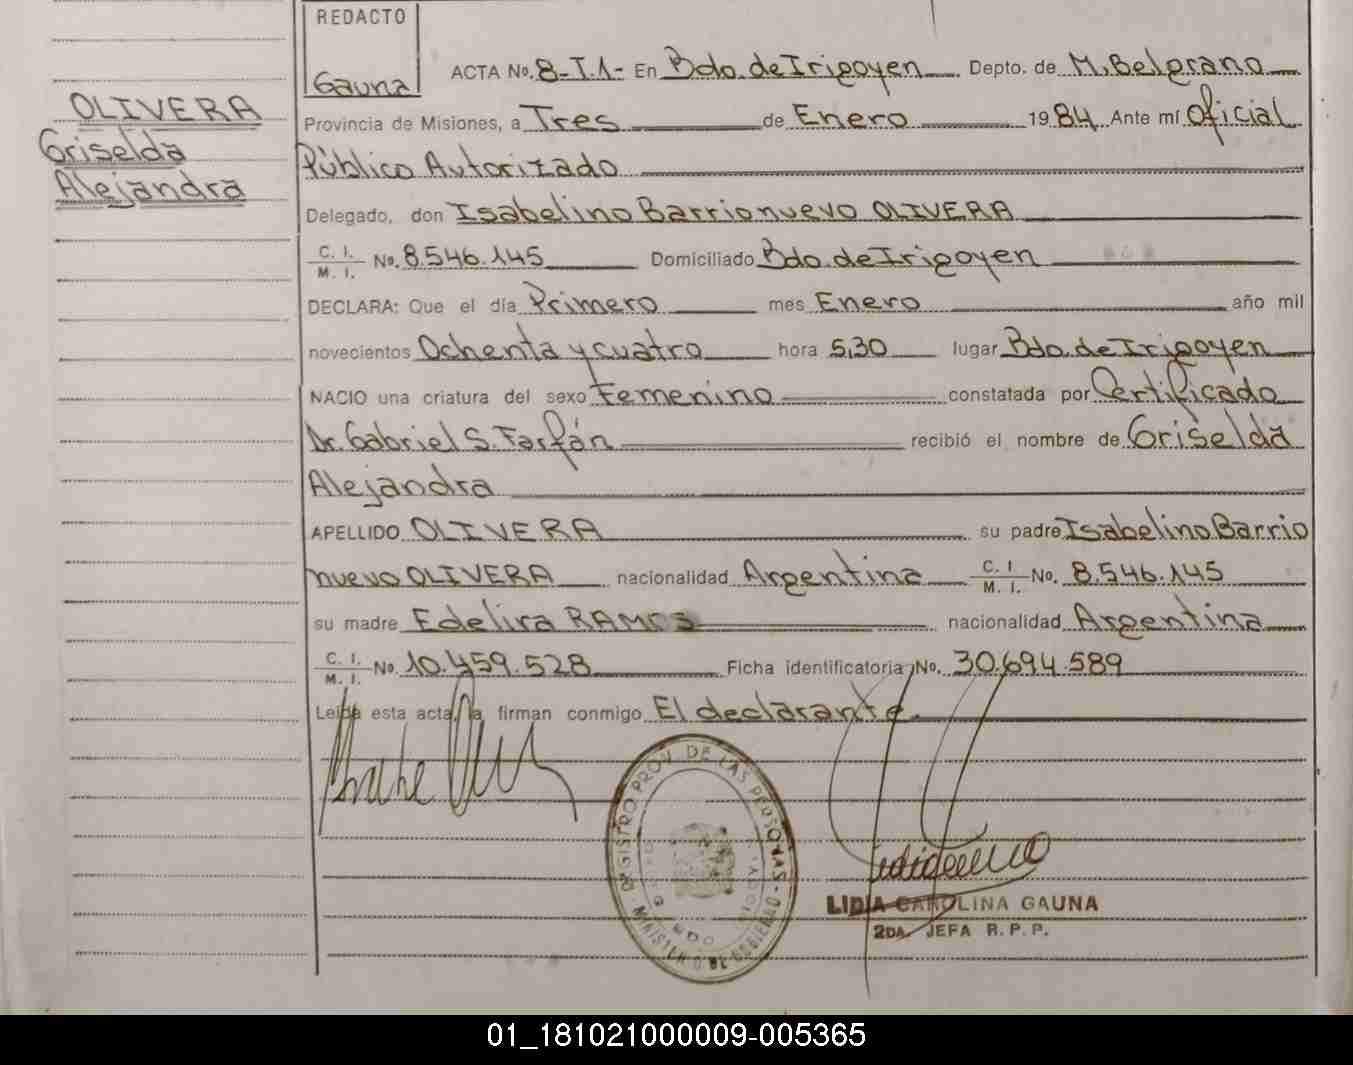 REDACTO
Gauna
OLIVERA
Griselda
Alejandra
ACTA No. 8-T.1- En Bdo. de Irigoyen Depto. de M. Belgrano
Provincia de Misiones, a Tres de Enero 1984 Ante mí Oficial
Público Autorizado
Delegado, don Isabelino Barrionuevo OLIVERA
C. I.
M. I. No. 8.546.145 Domiciliado Bdo. de Irigoyen
DECLARA: Que el día Primero mes Enero año mil
novecientos Ochenta y cuatro hora 5,30 lugar Bdo. de Irigoyen
NACIO una criatura del sexo Femenino constatada por Certificado
Dr. Gabriel S. Farfán recibió el nombre de Griselda
Alejandra
APELLIDO OLIVERA su padre Isabelino Barrio
nuevo OLIVERA nacionalidad Argentina C. I.
M. I. No. 8.546.145
su madre Edelira RAMOS nacionalidad Argentina
C. I.
M. I. No. 10.459.528 Ficha identificatoria No. 30.694.589
Leída esta acta, la firman conmigo El declarante.
REGISTRO PROV. DE LAS PERSONAS - MINISTERIO DE GOBIERNO
LIDIA CAROLINA GAUNA
2DA. JEFA R. P. P.
01_181021000009-005365